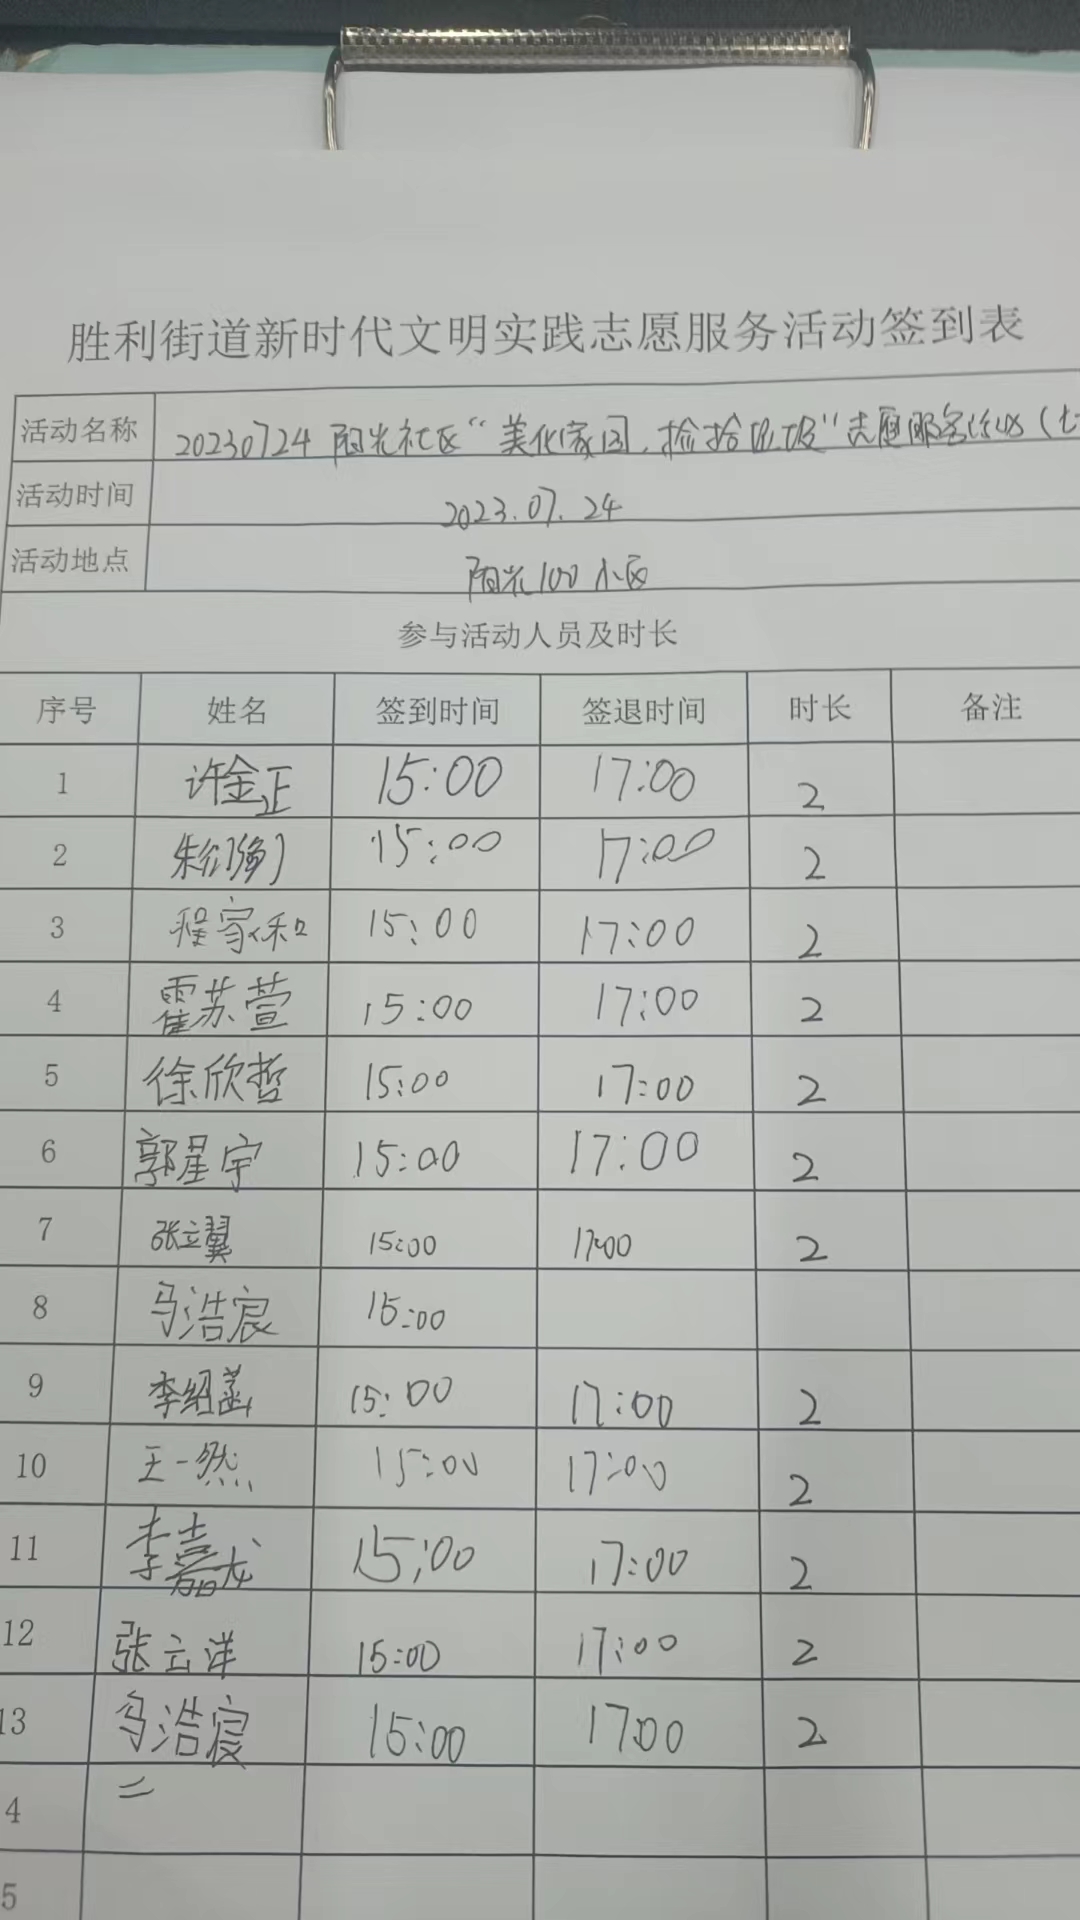 胜利街道新时代文明实践志愿服务活动签到表
活动名称 20230724 阳光社区“美化家园,捡拾垃圾”志愿服务活动(七
活动时间 2023.07.24
活动地点 阳光100小区
参与活动人员及时长
序号 姓名 签到时间 签退时间 时长 备注
1 许金正 15:00 17:00 2
2 15:00 17:00 2
3 程家和 15:00 17:00 2
4 霍苏萱 15:00 17:00 2
5 徐欣哲 15:00 17:00 2
6 郭星宇 15:00 17:00 2
7 张立翼 15:00 17:00 2
8 马浩宸 15:00
9 李绍菡 15:00 17:00 2
10 王一然 15:00 17:00 2
11 李嘉龙 15:00 17:00 2
12 张云洋 15:00 17:00 2
13 马浩宸 15:00 17:00 2
4
5